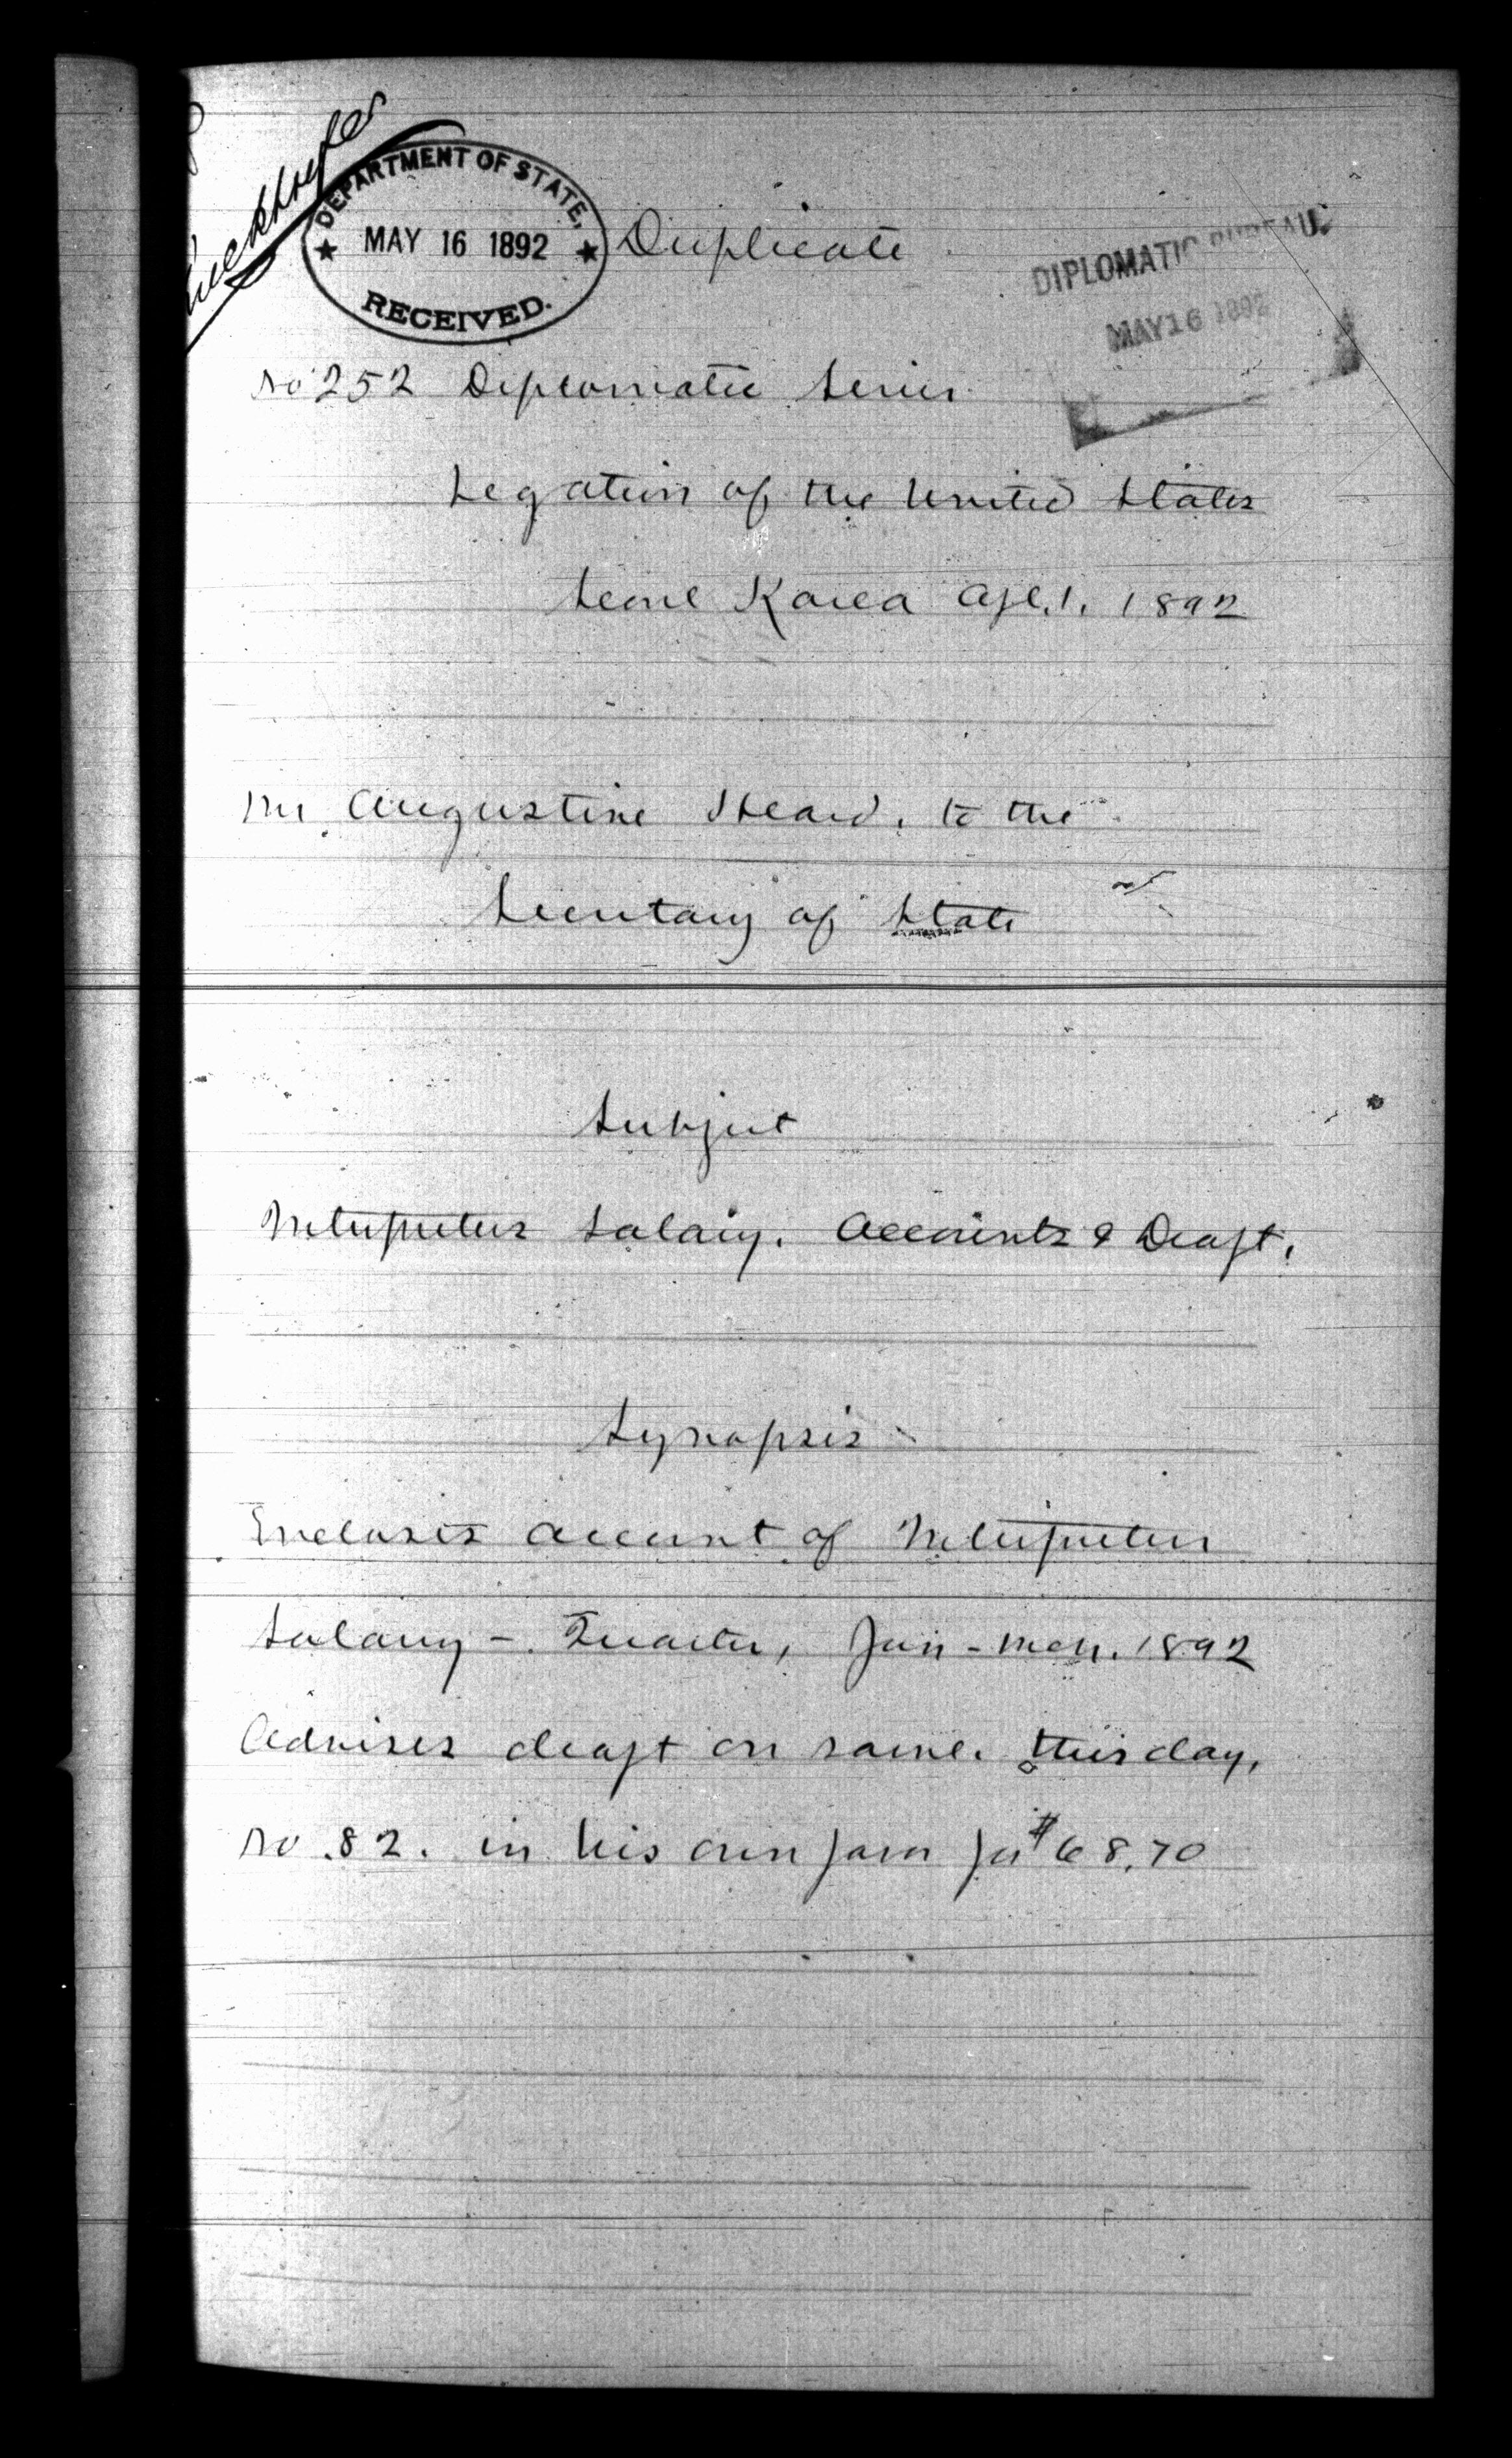 DEPARTMENT OF STATE,
MAY 16 1892
RECEIVED.
Duplicate
DIPLOMATIC BUREAU.
MAY 16 1892
No 252 Diplomatic Series
Legation of the United States
Seoul Korea Apl. 1. 1892
Mr Augustine Heard, to the
Secretary of State
Subject
Interpreters Salary. Accounts & Draft.
Synopsis
Encloses account of Interpreters
Salary - Quarter, Jan - Mch. 1892
Advises draft on same. this day,
No. 82. in his own favor for $68.70